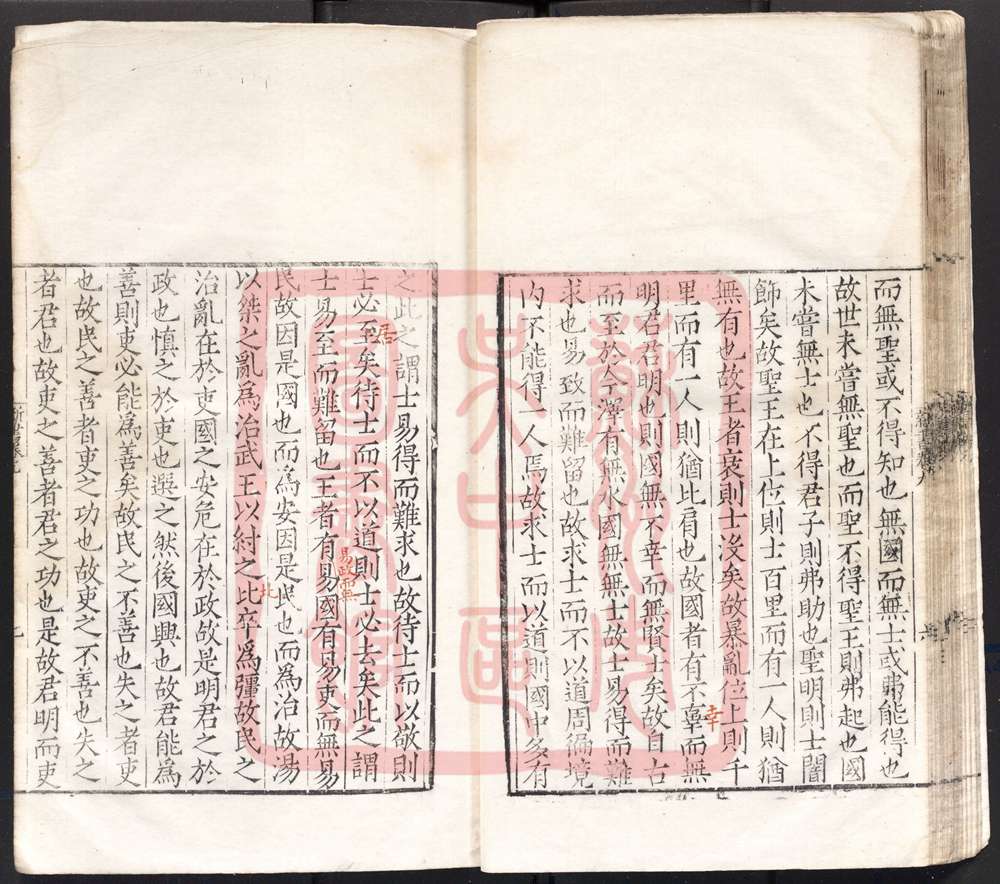 而無聖或不得知也無國而無士或弗能得也
故世未嘗無聖也而聖不得聖王則弗起也國
未嘗無士也不得君子則弗助也聖明則士闇
飾矣故聖王在上位則士百里而有一人則猶
無有也故王者衰則士沒矣故暴亂位上則千
里而有一人則猶比肩也故國者有不辜而無
幸
明君君明也則國無不幸而無賢士矣故自古
而至於今澤有無水國無無士故士易得而難
求也易致而難留也故求士而不以道周徧境
內不能得一人焉故求士而以道則國中多有
之此之謂士易得而難求也故待士而以敬則
士必至矣待士而不以道則士必去矣此之謂
居
士易至而難留也王者有易國有易吏而無易
易政無
民故因是國也而為安因是民也而為治故湯
以桀之亂為治武王以紂之北卒為彊故民之
北
治亂在於吏國之安危在於政故是明君之於
政也慎之於吏也選之然後國興也故君能為
善則吏必能為善矣故民之不善也失之者吏
也故民之善者吏之功也故吏之不善也失之
者君也故吏之善者君之功也是故君明而吏
新書卷九
九